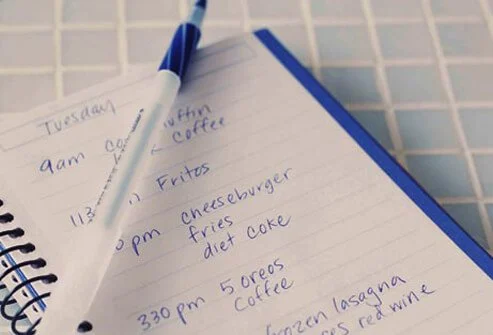 Tuesday
9am
Coffee
Fritos
pm cheeseburger
fries
diet coke
330 pm 5 oreos
Coffee
frozen lasagna
red wine